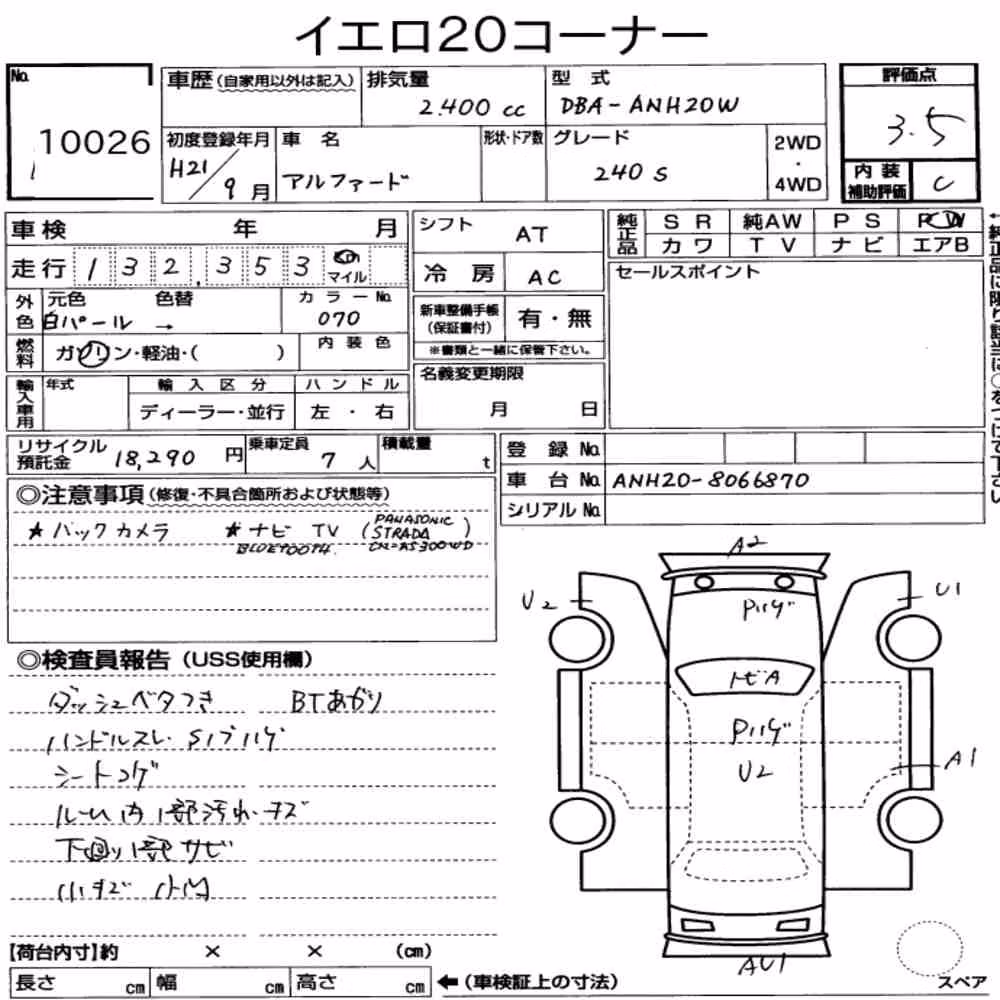 イエロ20コーナー
No.
10026
車歴(自家用以外は記入)
排気量
2.400 cc
型 式
DBA-ANH20W
評価点
3.5
初度登録年月
H21/9月
車 名
アルファード
形状・ドア数
グレード
240 S
2WD
・
4WD
内 装
補助評価
C
車検 年 月
走行 132,353 km マイル
シフト
AT
冷 房
AC
純正品
SR 純AW PS PW
カワ TV ナビ エアB
セールスポイント
外色
元色 色替
白パール →
カラーNo.
070
新車整備手帳
(保証書付)
有・無
※書類と一緒に保管下さい。
燃料
ガソリン・軽油・( )
内装色
輸入車用
年式
輸入区分
ディーラー・並行
ハンドル
左 ・ 右
名義変更期限
月 日
リサイクル
預託金
18,290 円
乗車定員
7 人
積載量
t
登 録 No.
車 台 No.
ANH20-8066870
シリアル No.
◎注意事項(修復・不具合箇所および状態等)
★バックカメラ ★ナビ TV (PANASONIC
STRADA
CN-AS300WD)
BLUETOOTH.
◎検査員報告(USS使用欄)
ダッシュベタつき BTあがり
ハンドルスレ S1プハゲ
シートコゲ
ルーム内1部汚れ・キズ
下回り1部サビ
小キズ 小凹
A2
U2
U1
P1ハゲ
トビA
P1ハゲ
U2
A1
AU1
【荷台内寸】約 × × (cm)
長さ cm 幅 cm 高さ cm ←(車検証上の寸法)
スペア